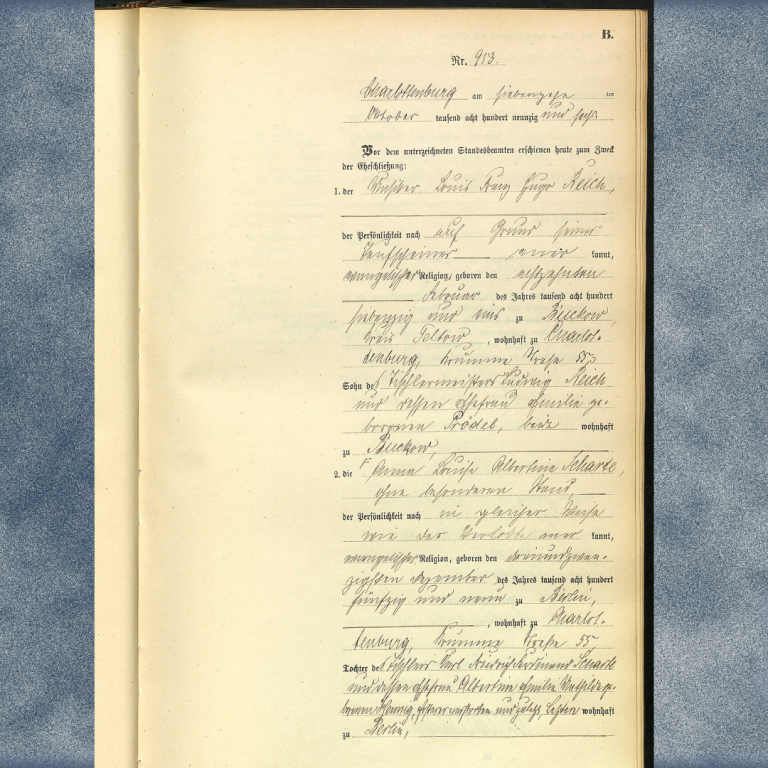 B.
Nr. 953.
Charlottenburg am siebenzehn ten
Oktober tausend acht hundert neunzig und sechs
Vor dem unterzeichneten Standesbeamten erschienen heute zum Zweck
der Eheschließung:
1. der Musiker Louis Franz Hugo Reich,
der Persönlichkeit nach auf Grund seines
Taufscheines aner kannt,
evangelischer Religion, geboren den achtzehnten
Februar des Jahres tausend acht hundert
siebenzig und eins zu Buckow,
Kreis Teltow, wohnhaft zu Charlot-
tenburg, Krumme Straße 55,
Sohn des Tischlermeisters Ludwig Reich
und dessen Ehefrau Emilie ge-
borenen Prödel, beide wohnhaft
zu Buckow,
2. die Anna Louise Albertine Scharte,
ohne besonderen Stand,
der Persönlichkeit nach in gleicher Weise
wie der Verlobte aner kannt,
evangelischer Religion, geboren den dreiundzwan-
zigsten Dezember des Jahres tausend acht hundert
fünfzig und neun zu Berlin,
, wohnhaft zu Charlot-
tenburg, Krumme Straße 55
Tochter des Tischlers Karl Friedrich Ferdinand Scharte
und dessen Ehefrau Albertine Emilie Mathilde ge-
borenen Hennig, ersterer verstorben und zuletzt, letztere wohnhaft
zu Berlin,